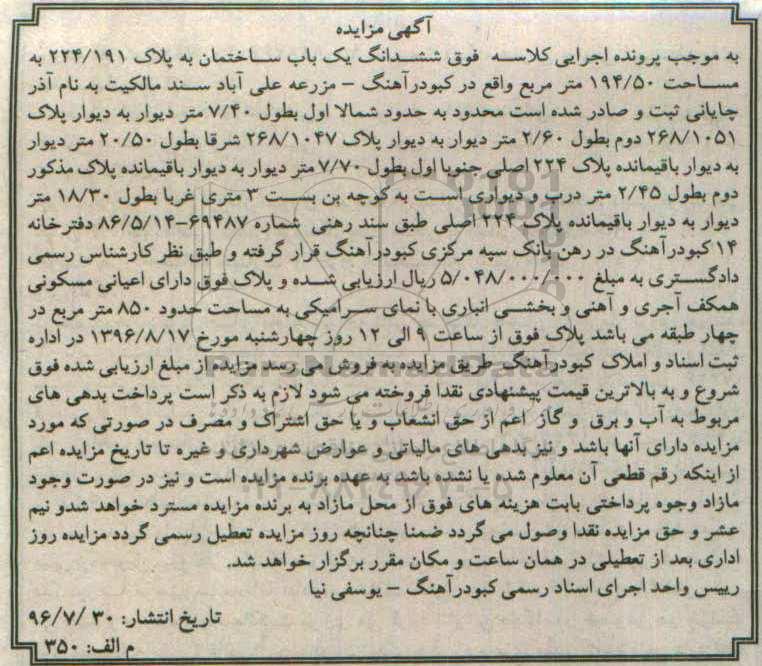 آگهی مزایده
به موجب پرونده اجرایی کلاسه فوق ششدانگ یک باب ساختمان به پلاک ۲۲۴/۱۹۱ به
مساحت ۱۹۴/۵۰ متر مربع واقع در کبودرآهنگ – مزرعه علی آباد سند مالکیت به نام آذر
چایانی ثبت و صادر شده است محدود به حدود شمالا اول بطول ۷/۴۰ متر دیوار به دیوار پلاک
۲۶۸/۱۰۵۱ دوم بطول ۲/۶۰ متر دیوار به دیوار پلاک ۲۶۸/۱۰۴۷ شرقا بطول ۲۰/۵۰ متر دیوار
به دیوار باقیمانده پلاک ۲۲۴ اصلی جنوبا اول بطول ۷/۷۰ متر دیوار به دیوار باقیمانده پلاک مذکور
دوم بطول ۲/۴۵ متر درب و دیواری است به کوچه بن بست ۳ متری غربا بطول ۱۸/۳۰ متر
دیوار به دیوار باقیمانده پلاک ۲۲۴ اصلی طبق سند رهنی شماره ۶۹۴۸۷-۸۶/۵/۱۴ دفترخانه
۱۴ کبودرآهنگ در رهن بانک سپه مرکزی کبودرآهنگ قرار گرفته و طبق نظر کارشناس رسمی
دادگستری به مبلغ ۵/۰۴۸/۰۰۰/۰۰۰ ریال ارزیابی شده و پلاک فوق دارای اعیانی مسکونی
همکف آجری و آهنی و بخشی انباری با نمای سرامیکی به مساحت حدود ۸۵۰ متر مربع در
چهار طبقه می باشد پلاک فوق از ساعت ۹ الی ۱۲ روز چهارشنبه مورخ ۱۳۹۶/۸/۱۷ در اداره
ثبت اسناد و املاک کبودرآهنگ طریق مزایده به فروش می رسد مزایده از مبلغ ارزیابی شده فوق
شروع و به بالاترین قیمت پیشنهادی نقدا فروخته می شود لازم به ذکر است پرداخت بدهی های
مربوط به آب و برق و گاز اعم از حق انشعاب و یا حق اشتراک و مصرف در صورتی که مورد
مزایده دارای آنها باشد و نیز بدهی های مالیاتی و عوارض شهرداری و غیره تا تاریخ مزایده اعم
از اینکه رقم قطعی آن معلوم شده یا نشده باشد به عهده برنده مزایده است و نیز در صورت وجود
مازاد وجوه پرداختی بابت هزینه های فوق از محل مازاد به برنده مزایده مسترد خواهد شدو نیم
عشر و حق مزایده نقدا وصول می گردد ضمنا چنانچه روز مزایده تعطیل رسمی گردد مزایده روز
اداری بعد از تعطیلی در همان ساعت و مکان مقرر برگزار خواهد شد.
رییس واحد اجرای اسناد رسمی کبودرآهنگ – یوسفی نیا
تاریخ انتشار: ۳۰ /۹۶/۷
م الف: ۳۵۰